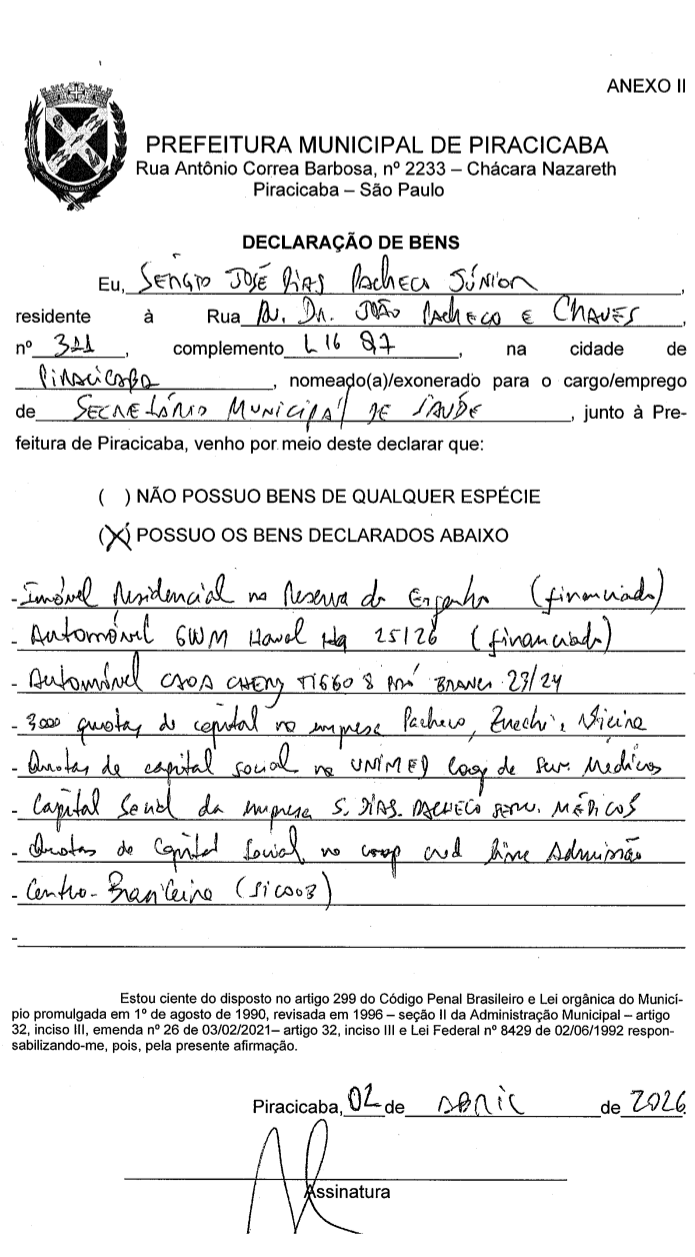 ANEXO II
PREFEITURA MUNICIPAL DE PIRACICABA
Rua Antônio Correa Barbosa, nº 2233 – Chácara Nazareth
Piracicaba – São Paulo
DECLARAÇÃO DE BENS
Eu, SÉRGIO JOSÉ DIAS PACHECO JÚNIOR,
residente à Rua AV. DR. JOÃO PACHECO E CHAVES,
nº 311, complemento L16 Q7, na cidade de
PIRACICABA, nomeado(a)/exonerado para o cargo/emprego
de SECRETÁRIO MUNICIPAL DE SAÚDE, junto à Pre-
feitura de Piracicaba, venho por meio deste declarar que:
( ) NÃO POSSUO BENS DE QUALQUER ESPÉCIE
(X) POSSUO OS BENS DECLARADOS ABAIXO
- Imóvel Residencial na Reserva do Engenho (financiado)
- Automóvel GWM Haval 25/26 (financiado)
- Automóvel CAOA CHERY TIGGO 8 PRÓ BRANCO 23/24
- 3000 quotas de capital na empresa Pacheco, e
- Quotas de capital social na UNIMED Coop de Serv. Médicos
- Capital Social da empresa S. DIAS PACHECO SERV. MÉDICOS
- Quotas de Capital Social na coop cred livre Admissão
- Centro-Brasileira (SICOOB)
-
Estou ciente do disposto no artigo 299 do Código Penal Brasileiro e Lei orgânica do Municí-
pio promulgada em 1º de agosto de 1990, revisada em 1996 – seção II da Administração Municipal – artigo
32, inciso III, emenda nº 26 de 03/02/2021– artigo 32, inciso III e Lei Federal nº 8429 de 02/06/1992 respon-
sabilizando-me, pois, pela presente afirmação.
Piracicaba, 02 de ABRIL de 2026
Assinatura